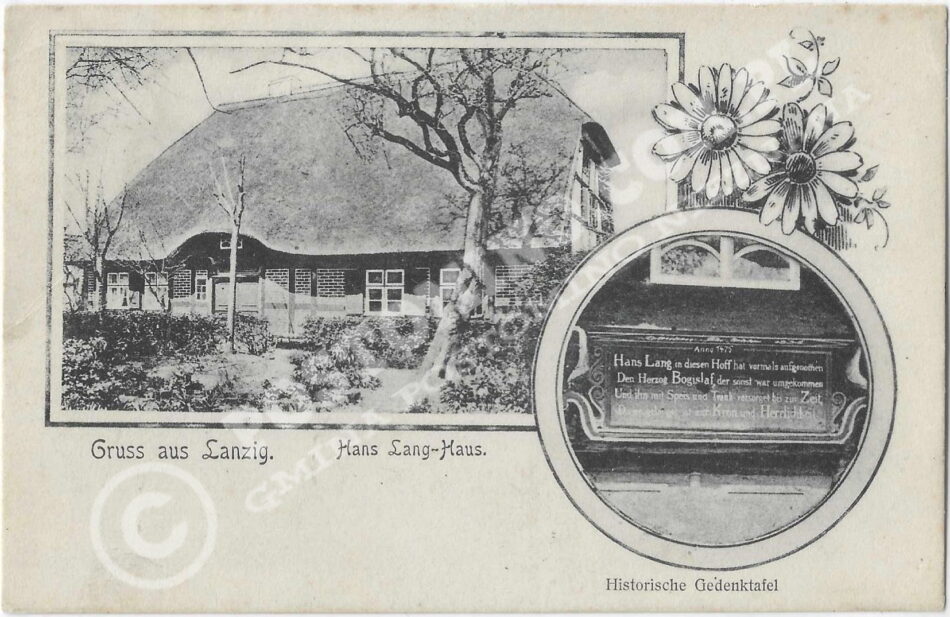 Gruss aus Lanzig.
Hans Lang-Haus.
Anno 1475
Hans Lang in diesen Hoff hat vormals aufgenomen
Den Herzog Bogislaf, der sonst war umgekomen
Und ihn mit Speis und Trank versorget bis zur Zeit
ist mit Kron und Herrlichkeit
Historische Gedenktafel
©
POSTOMINO.COM
GMINA POSTOMINO NA